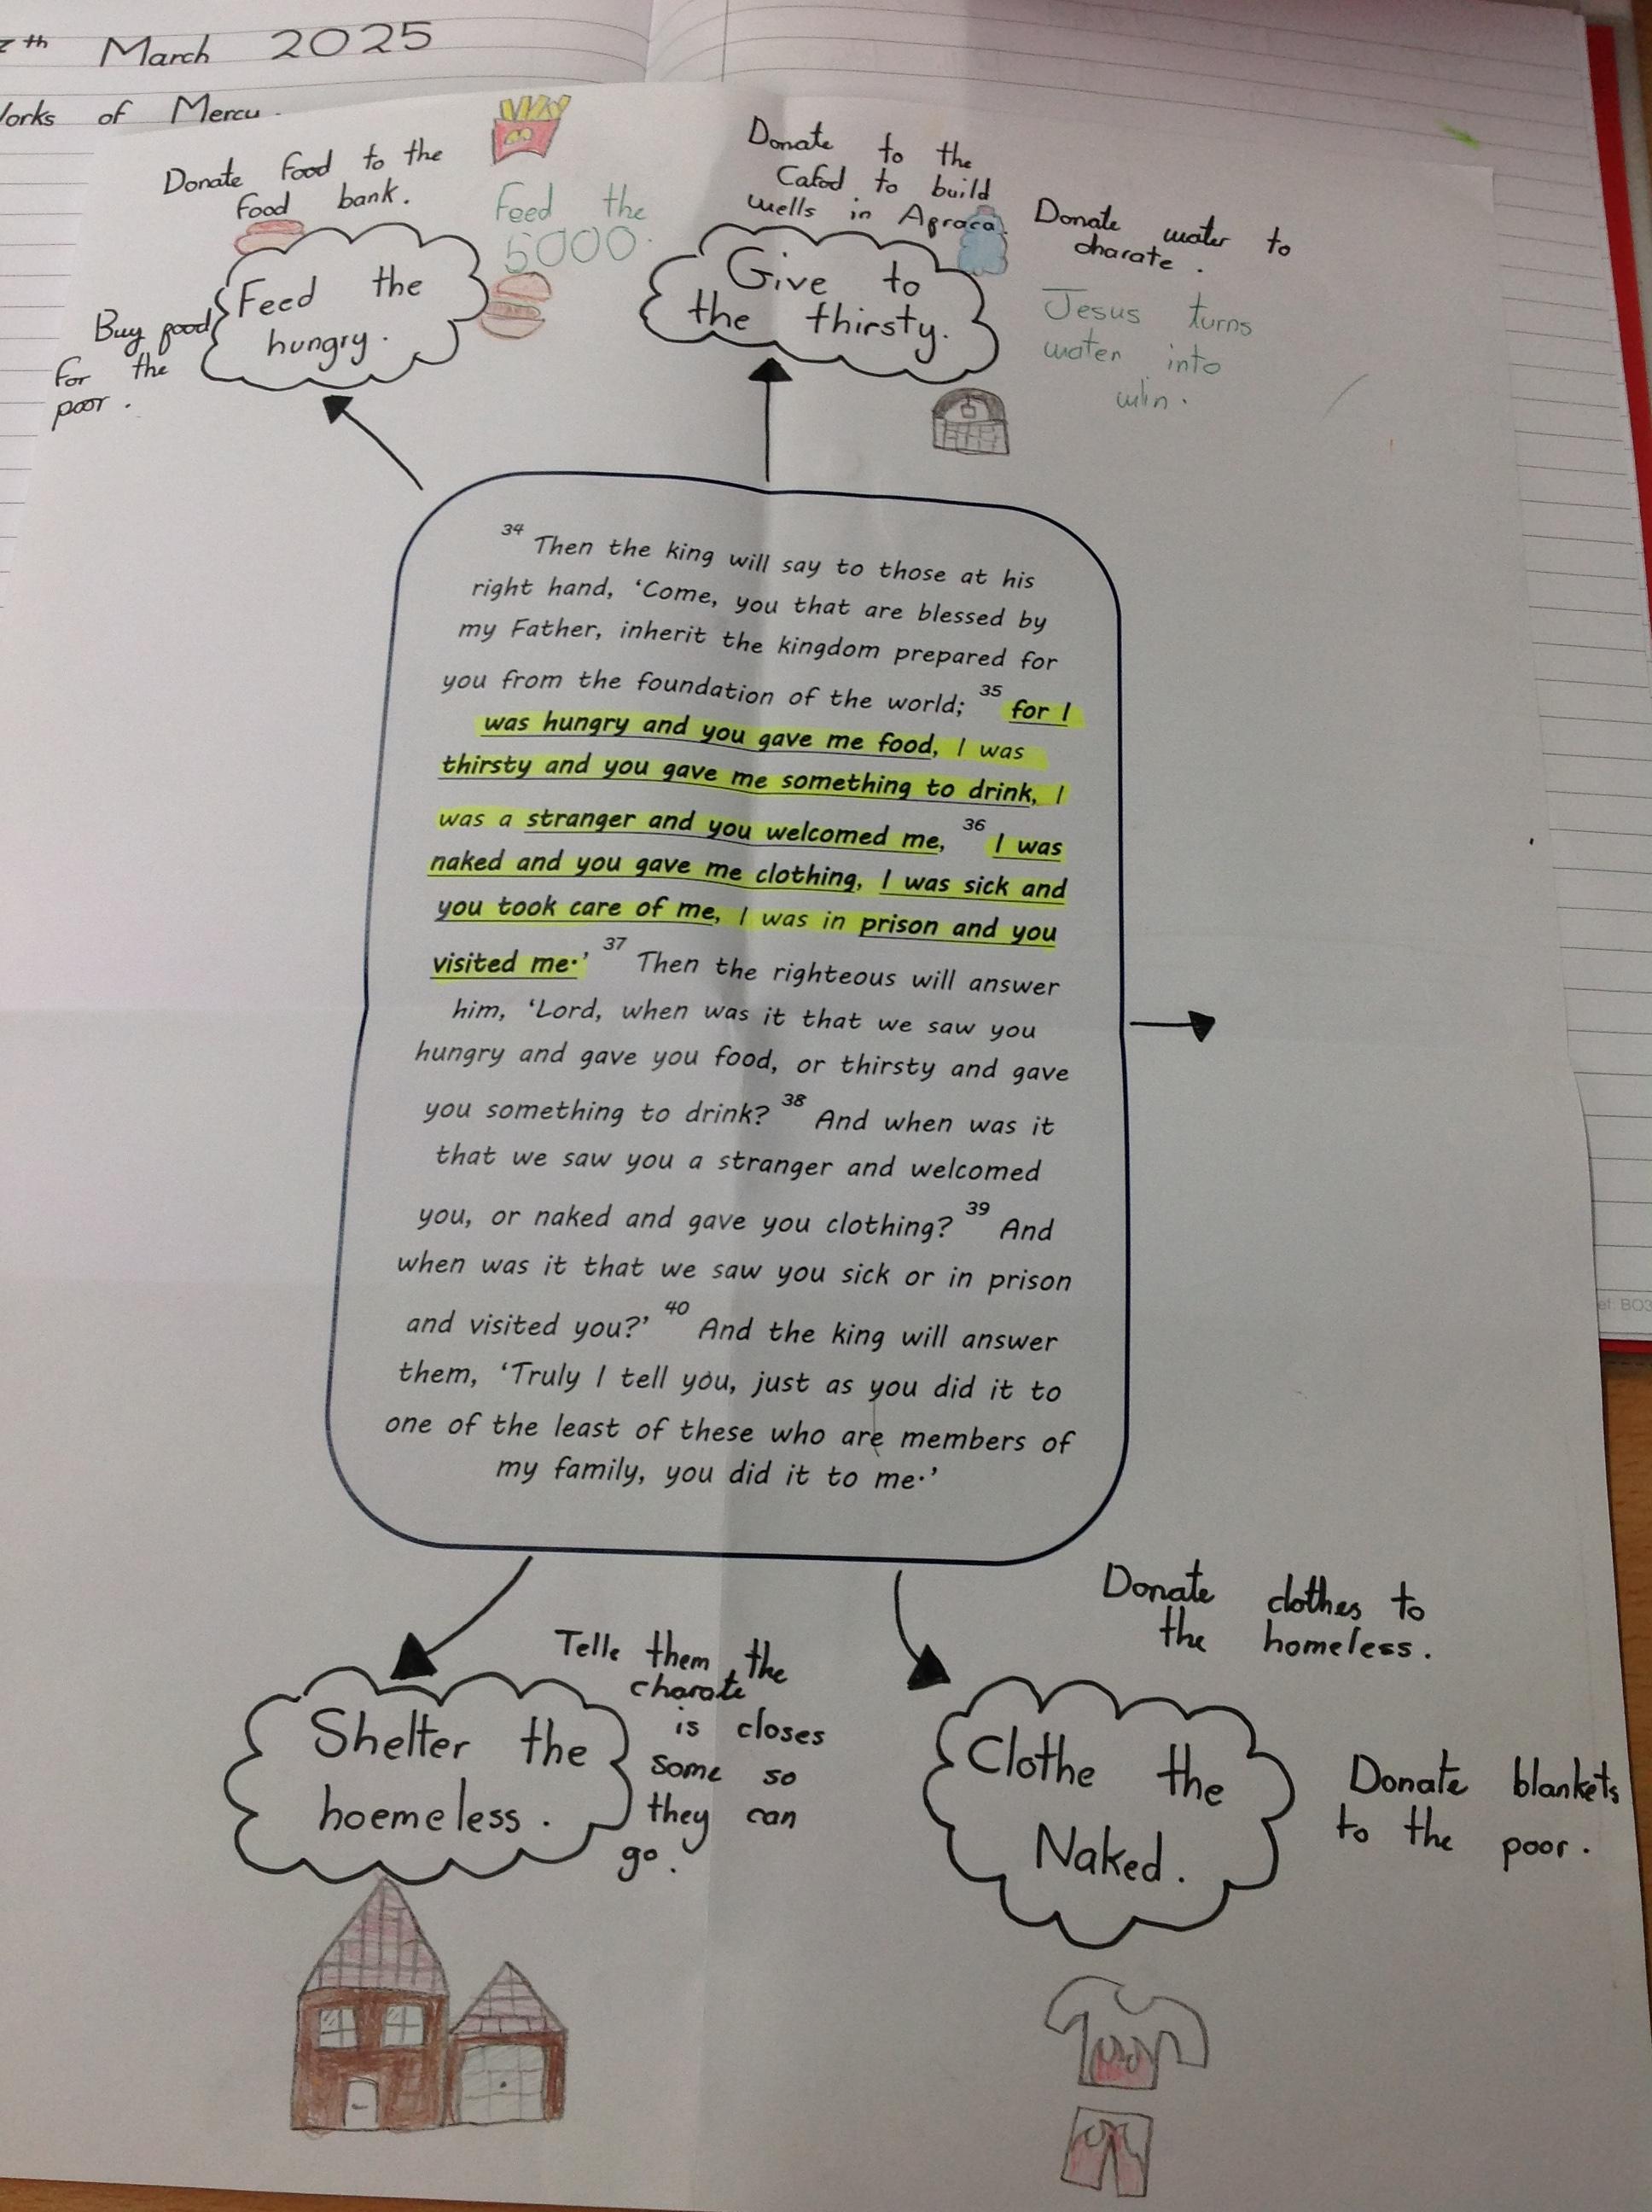 th March 2025
Works of Mercy.
Donate food to the
food bank.
Feed the
5000.
Buy food
for the
poor.
Feed the
hungry.
Donate to the
Cafod to build
wells in Agraca.
Donate water to
charate.
Jesus turns
water into
Give to
the thirsty.
34 Then the king will say to those at his
right hand, ‘Come, you that are blessed by
my Father, inherit the kingdom prepared for
you from the foundation of the world; 35 for I
was hungry and you gave me food, I was
thirsty and you gave me something to drink, I
was a stranger and you welcomed me, 36 I was
naked and you gave me clothing, I was sick and
you took care of me, I was in prison and you
visited me.’ 37 Then the righteous will answer
him, ‘Lord, when was it that we saw you
hungry and gave you food, or thirsty and gave
you something to drink? 38 And when was it
that we saw you a stranger and welcomed
you, or naked and gave you clothing? 39 And
when was it that we saw you sick or in prison
and visited you?’ 40 And the king will answer
them, ‘Truly I tell you, just as you did it to
one of the least of these who are members of
my family, you did it to me.’
Telle them the
charate
is closes
some so
they can
go.
Shelter the
hoemeless.
Donate clothes to
the homeless.
Clothe the
Naked.
Donate blankets
to the poor.